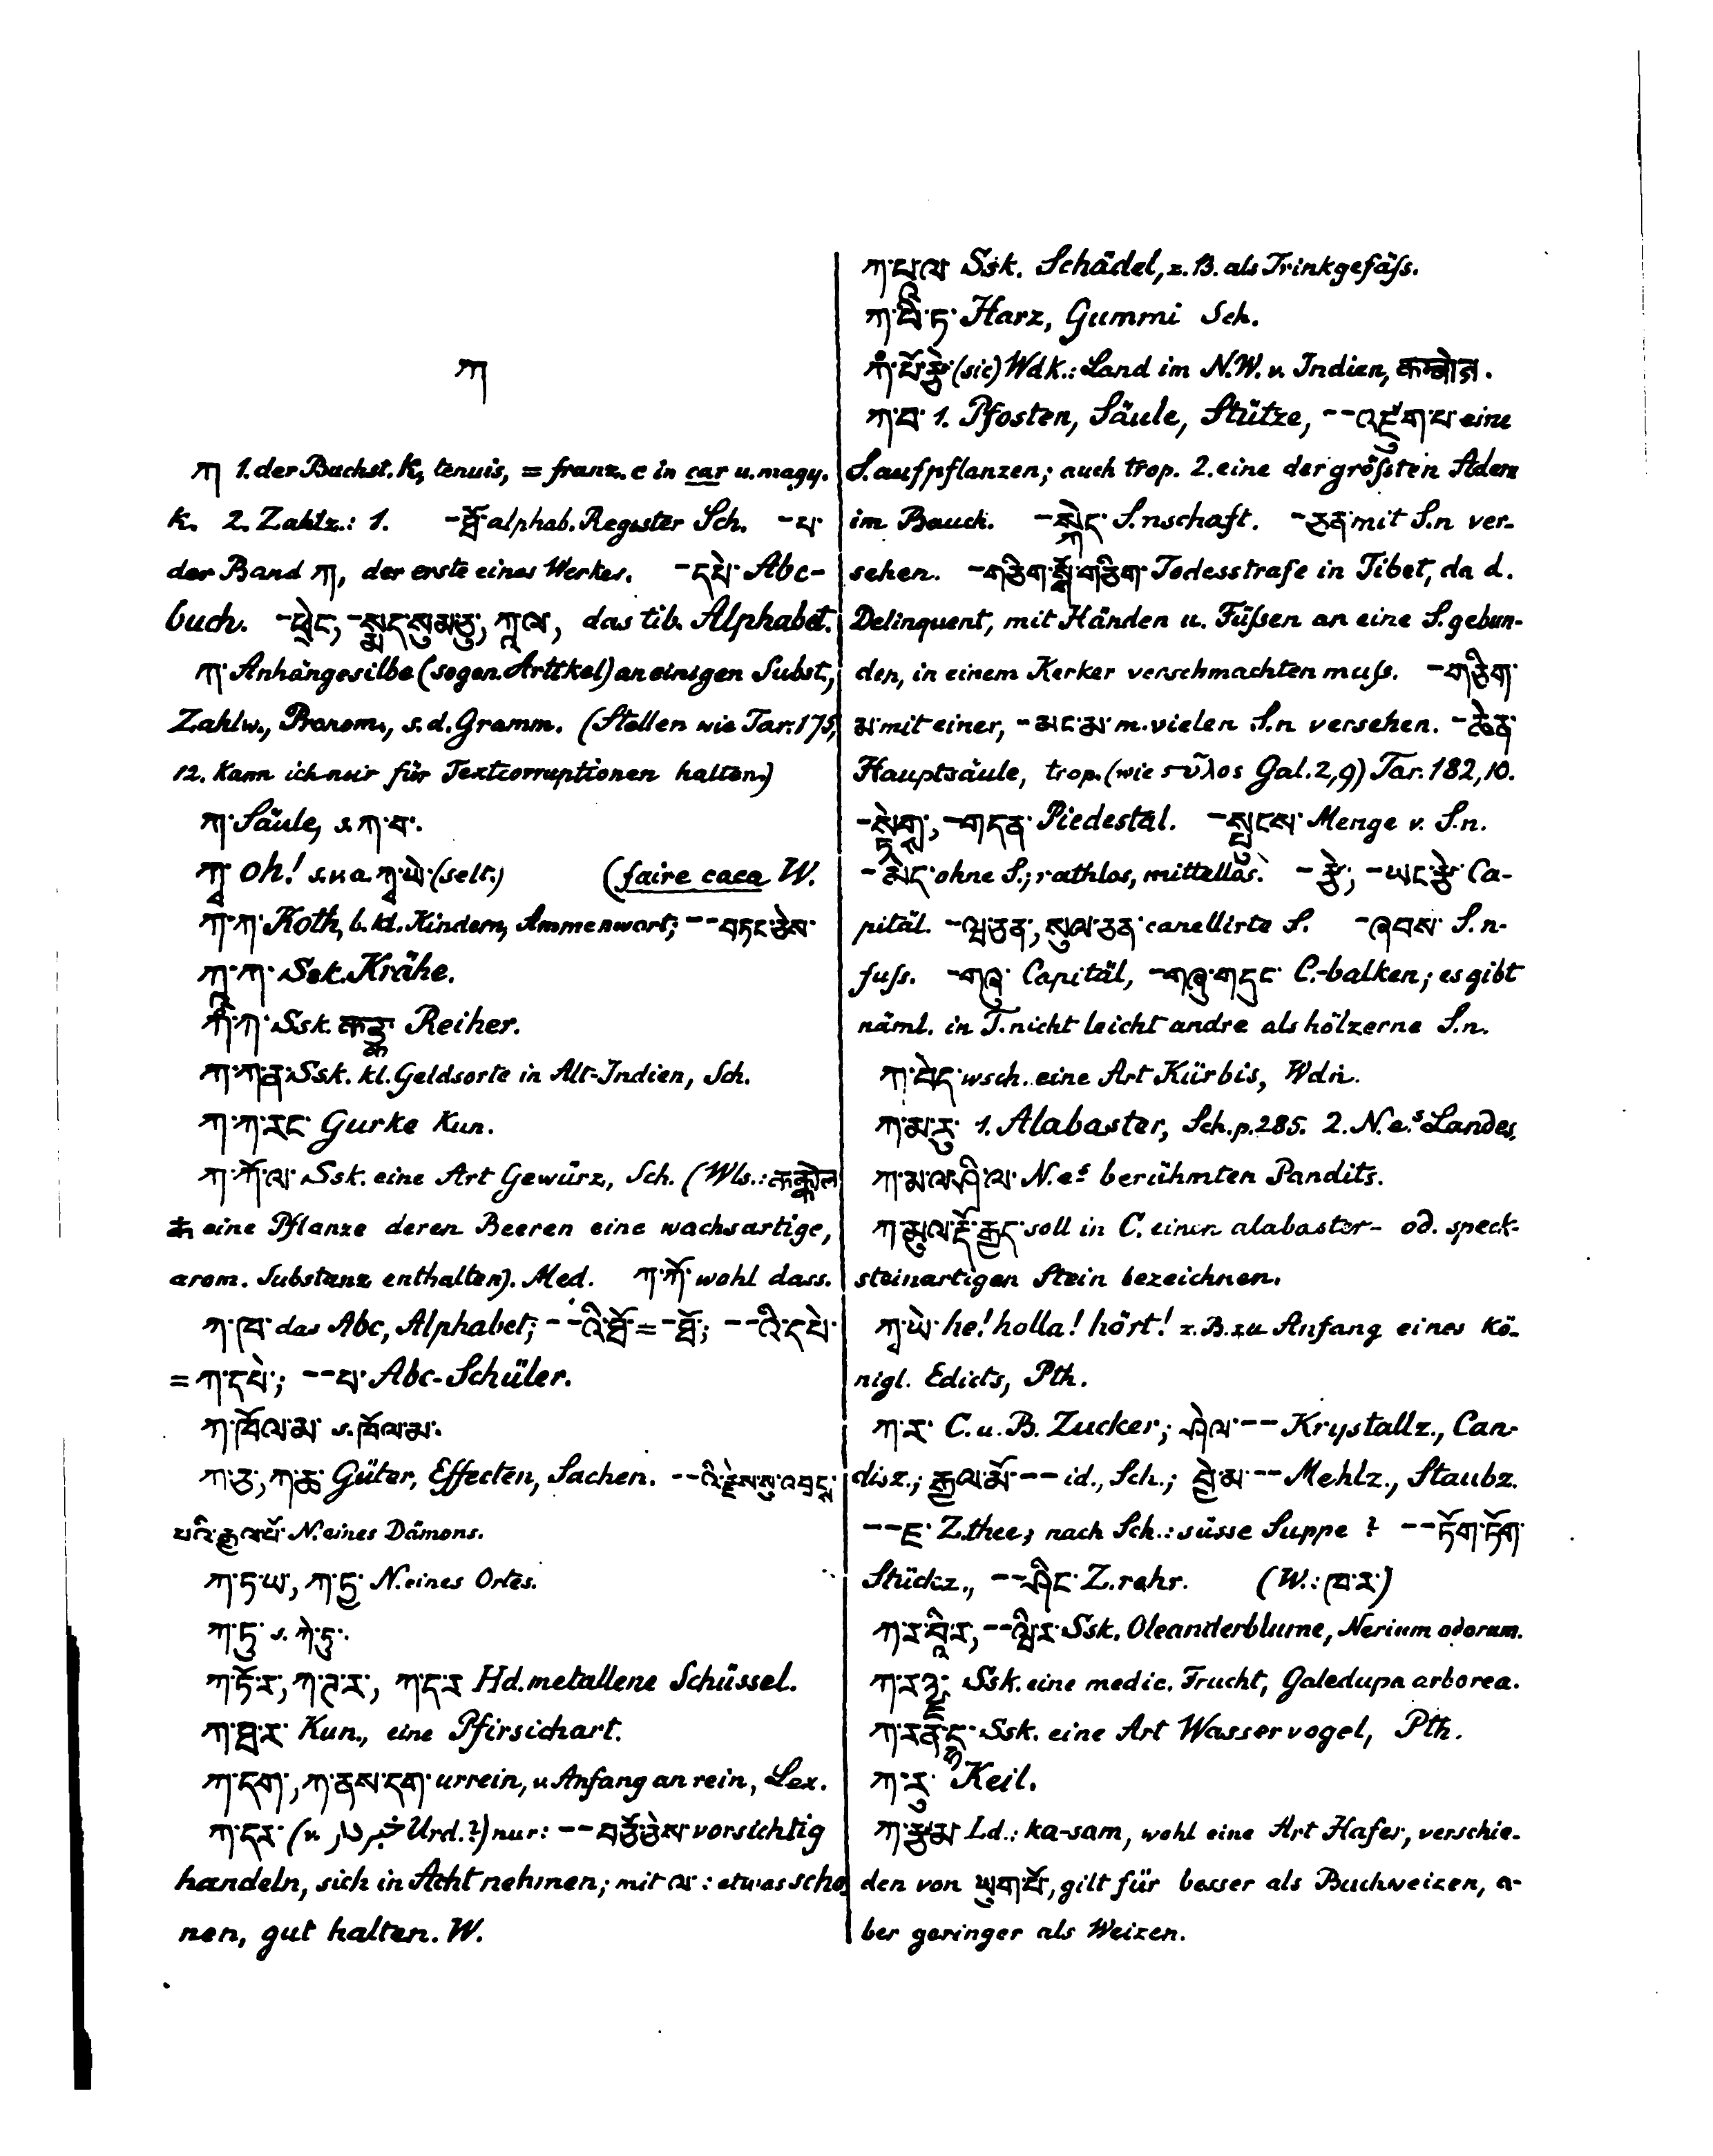 ཀ
ཀ 1. der Buchst. K, tenuis, = franz. c in car u. magy.
k. 2. Zahlz.: 1. -ཐོ་ alphab. Register Sch. -པ་
der Band ཀ, der erste eines Werkes. -དཔེ་ Abc-
buch. -ཕྲེང་, -སྨད་སུམ་ཅུ་, ཀཱ་ལི, das tib. Alphabet.
ཀ་ Anhängesilbe (sogen. Artikel) an einigen Subst,
Zahlw., Pronom., s. d. Gramm. (Stellen wie Tar. 175,
12. kann ich nur für Textcorruptionen halten.)
ཀ་ Säule, s. ཀ་བ་.
ཀྭ་ oh! s.v.a. ཀྭ་ཡེ་ (selt.) (faire caca W.
ཀ་ཀ་ Koth, b. kl. Kindern, Ammenwort; --བཏང་ཅེས་
ཀཱ་ཀ་ Ssk. Krähe.
ཀཾ་ཀ་ Ssk. कङ्क Reiher.
ཀ་ཀ་ནི་ Ssk. kl. Geldsorte in Alt-Indien, Sch.
ཀ་ཀ་རང་ Gurke Kun.
ཀ་ཀོ་ལ་ Ssk. eine Art Gewürz, Sch. (Wls.: कक्कोल
क eine Pflanze deren Beeren eine wachsartige,
arom. Substanz enthalten). Med. ཀ་ཀོ་ wohl dass.
ཀ་ཁ་ das Abc, Alphabet; --འི་ཐོ་ = -ཐོ་; --འི་དཔེ་
= ཀ་དཔེ་; --པ་ Abc-Schüler.
ཀ་ཁོལ་མ་ s. ཁོལ་མ་.
ཀ་ཅ་, ཀ་ཆ་ Güter, Effecten, Sachen. --འི་རྗེས་སུ་འབྲང་
པའི་རྒྱལ་པོ་ N. eines Dämons.
ཀ་ཏ་ཡ་, ཀ་ཏྱ་ N. eines Ortes.
ཀ་ཏུ་ s. ཀེ་ཏུ་.
ཀ་ཏོ་ར་, ཀ་ཊ་ར་, ཀ་ད་ར Hd. metallene Schüssel.
ཀ་ཐ་ར་ Kun., eine Pfirsichart.
ཀ་དག་, ཀ་ནས་དག་ urrein, v. Anfang an rein, Lex.
ཀ་དར་ (v. Urd.?) nur: --བཅོ་ཅེས་ vorsichtig
handeln, sich in Acht nehmen; mit ལ་: etwas scho-
nen, gut halten. W.
ཀ་པ་ལ་ Ssk. Schädel, z. B. als Trinkgefäſs.
ཀ་པི་ཏ་ Harz, Gummi Sch.
ཀཾ་པོ་རྩེ་ (sic) Wdk.: Land im N.W. v. Indien, कम्बोज.
ཀ་བ་ 1. Pfosten, Säule, Stütze, --འཛུག་པ་ eine
S. aufpflanzen; auch trop. 2. eine der gröſsten Adern
im Bauch. -སྐེད་ S.nschaft. -ཅན་ mit S.n ver-
sehen. -གཅིག་སྒོ་གཅིག་ Todesstrafe in Tibet, da d.
Delinquent, mit Händen u. Füſsen an eine S. gebun-
den, in einem Kerker verschmachten muſs. -གཅིག་
མ་ mit einer, -མང་མ་ m. vielen S.n versehen. -ཆེན་
Hauptsäule, trop. (wie στῦλος Gal. 2,9) Tar. 182,10.
-སྟེགས་, -གདན་ Piedestal. -སྤུངས་ Menge v. S.n.
-མེད་ ohne S.; rathlos, mittellos. -རྩེ་, -ཡང་རྩེ་ Ca-
pitäl. -ལྷ་ཅན་, སུལ་ཅན་ canellirte S. -ཞབས་ S.n-
fuſs. -གཞུ་ Capitäl, -གཞུ་གདུང་ C.-balken; es gibt
näml. in T. nicht leicht andre als hölzerne S.n.
ཀ་བེད་ wsch. eine Art Kürbis, Wdn.
ཀ་མ་རུ་ 1. Alabaster, Sch. p. 285. 2. N. e.s Landes,
ཀ་མ་ལ་ཤཱི་ལ་ N. e.s berühmten Pandits.
ཀ་མུལ་རྡོ་རྒྱད་ soll in C. einen alabaster- od. speck-
steinartigen Stein bezeichnen.
ཀྭ་ཡེ་ he! holla! hört! z. B. zu Anfang eines kö-
nigl. Edicts, Pth.
ཀ་ར་ C. u. B. Zucker; ཤེལ་-- Krystallz., Can-
disz.; རྒྱལ་མོ་-- id., Sch.; བྱེ་མ་-- Mehlz., Staubz.
--ཇ་ Z.thee; nach Sch.: süsse Suppe? --ཏོག་ཏོག་
Stückz., --ཤིང་ Z.rohr. (W.: ཁ་ར་)
ཀ་ར་བཱི་ར་, --ལྷི་ར་ Ssk. Oleanderblume, Nerium odorum.
ཀ་རཉྫ་ Ssk. eine medic. Frucht, Galedupa arborea.
ཀ་རནྡ་ Ssk. eine Art Wasservogel, Pth.
ཀ་རུ་ Keil.
ཀ་རྩམ་ Ld.: ka-sam, wohl eine Art Hafer, verschie-
den von ཡུག་པོ་, gilt für besser als Buchweizen, a-
ber geringer als Weizen.